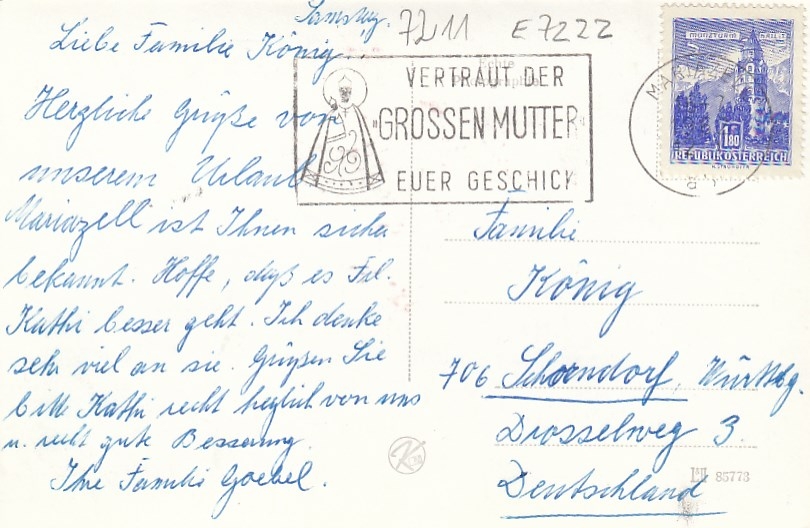 Samstag.
7211 E7222
Liebe Familie König.
Herzliche Grüße von
unserem Urlaub
Mariazell ist Ihnen sicher
bekannt. Hoffe, daß es Frl.
Kathi besser geht. Ich denke
sehr viel an sie. Grüßen Sie
bitte Kathi recht herzlich von uns
u. recht gute Besserung.
Ihre Familie Goebel.
Echte
VERTRAUT DER
"GROSSEN MUTTER"
EUER GESCHICK
MÜNZTURM HALL I.T.
S 1.80
REPUBLIK ÖSTERREICH
Familie
König
706 Schorndorf, Württbg.
Drosselweg 3.
Deutschland
K
85773